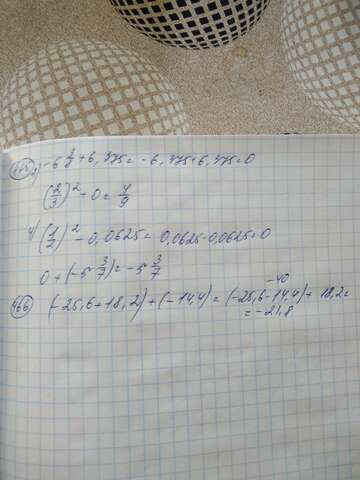 3) -6 3/8 + 6,375 = -6,375 + 6,375 = 0
(2/3)² + 0 = 4/9
4) (1/2)² - 0,0625 = 0,0625 - 0,0625 = 0
0 + (-5 3/7) = -5 3/7
466 (-25,6 + 18,2) + (-14,4) = (-25,6 - 14,4) + 18,2 =
-40
= -21,8